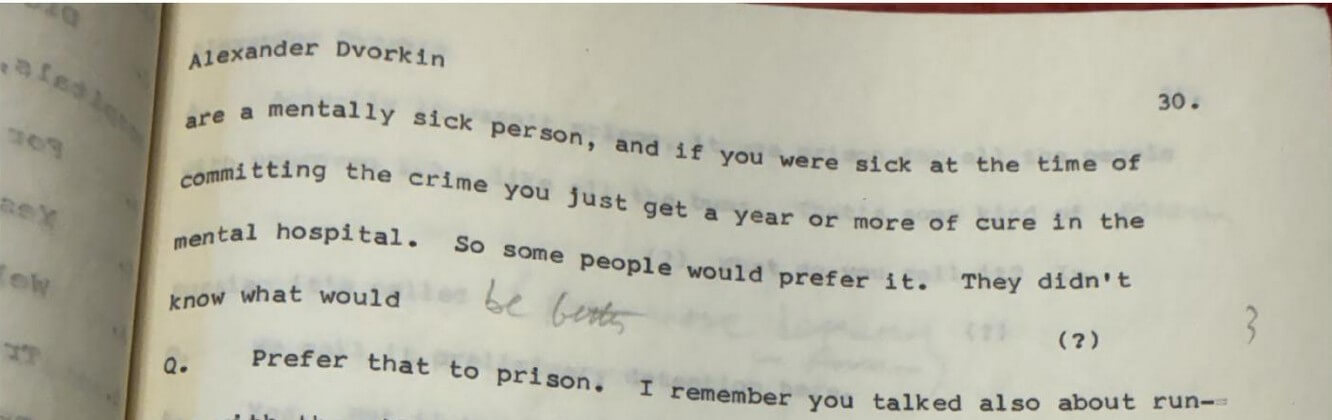 Alexander Dvorkin
30.
are a mentally sick person, and if you were sick at the time of
committing the crime you just get a year or more of cure in the
mental hospital.  So some people would prefer it.  They didn't
know what would be better (?) 3
Q. Prefer that to prison.  I remember you talked also about run-